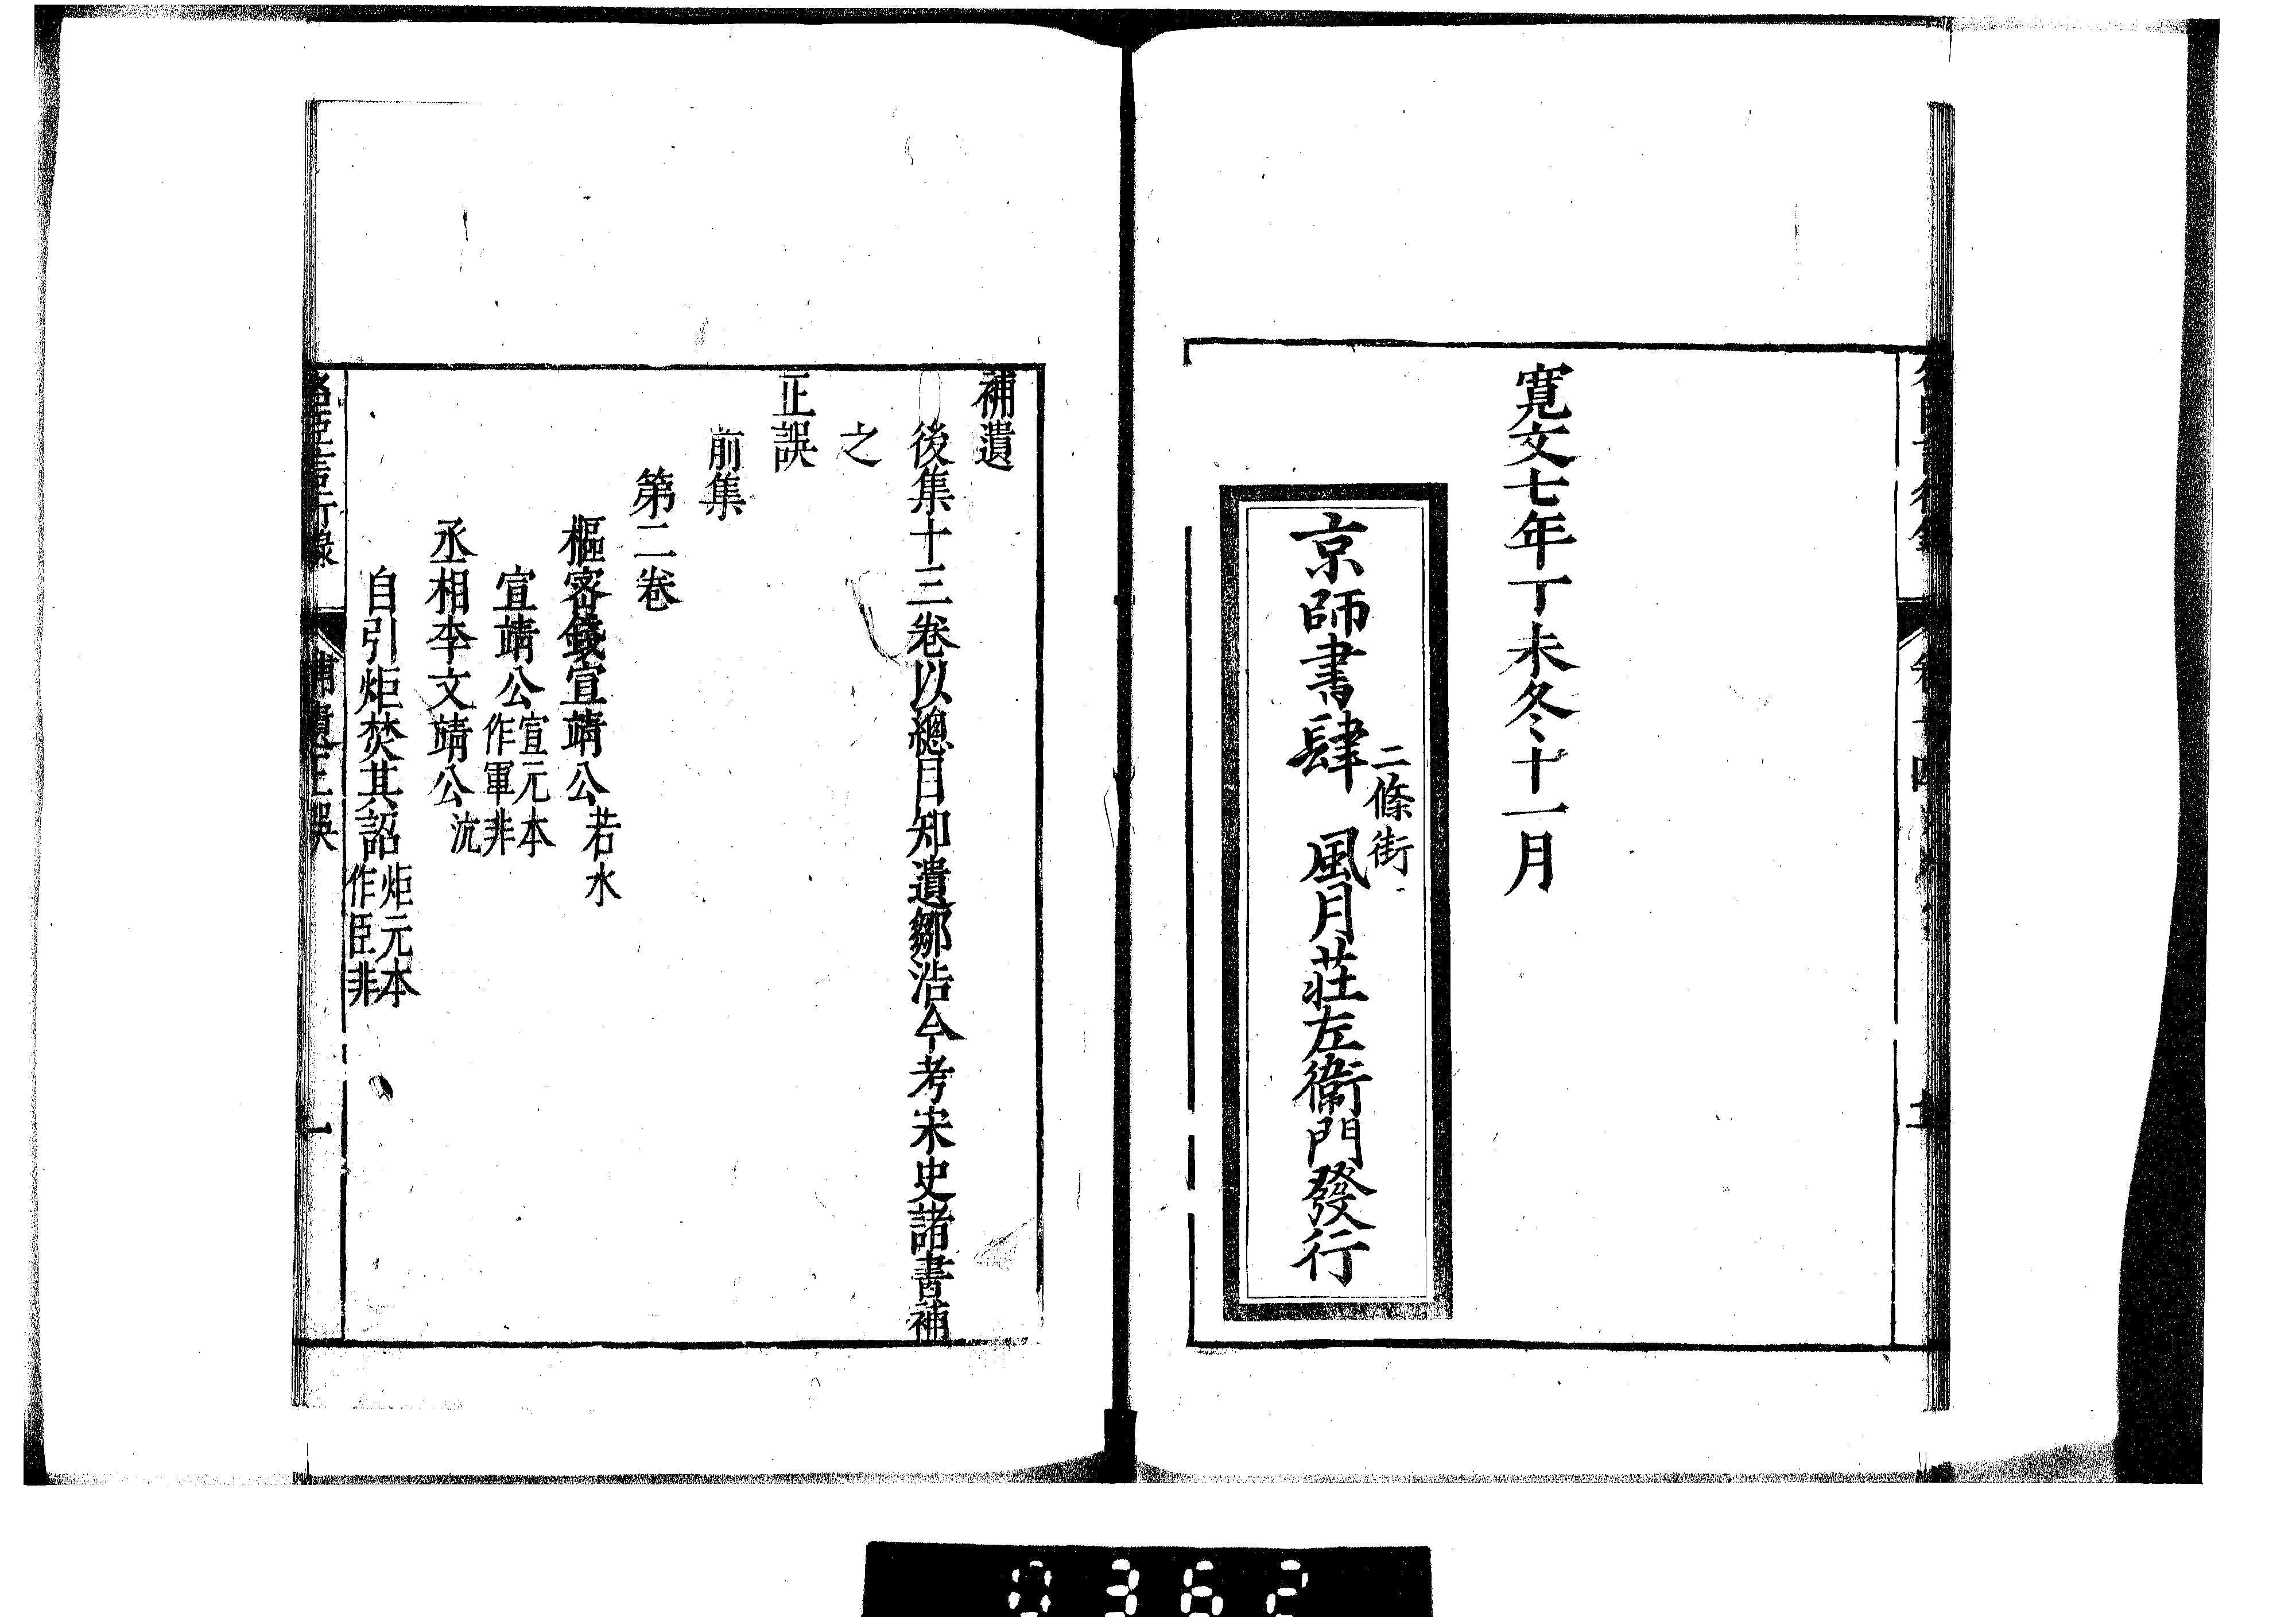 寛文七年丁未冬十一月
二條街
京師書肆 風月莊左衞門發行
補遺
後集十三卷以總目知遺鄒浩今考宋史諸書補
之
正誤
前集
第二卷
樞密錢宣靖公若水
宣靖公宣元本作軍非
丞相李文靖公沆
自引炬焚其詔炬元本作臣非
名臣言行錄 補遺正誤 一
0362